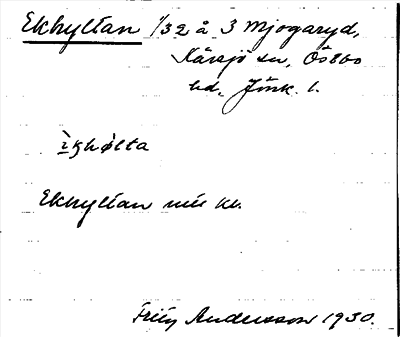 Ekhyltan 1/32 å 3 Mjogaryd,
Kärsjö sn, Östbo
hd, Jönk. l.
ìkhølta
Ekhyltan
Fritz Andersson 1930.